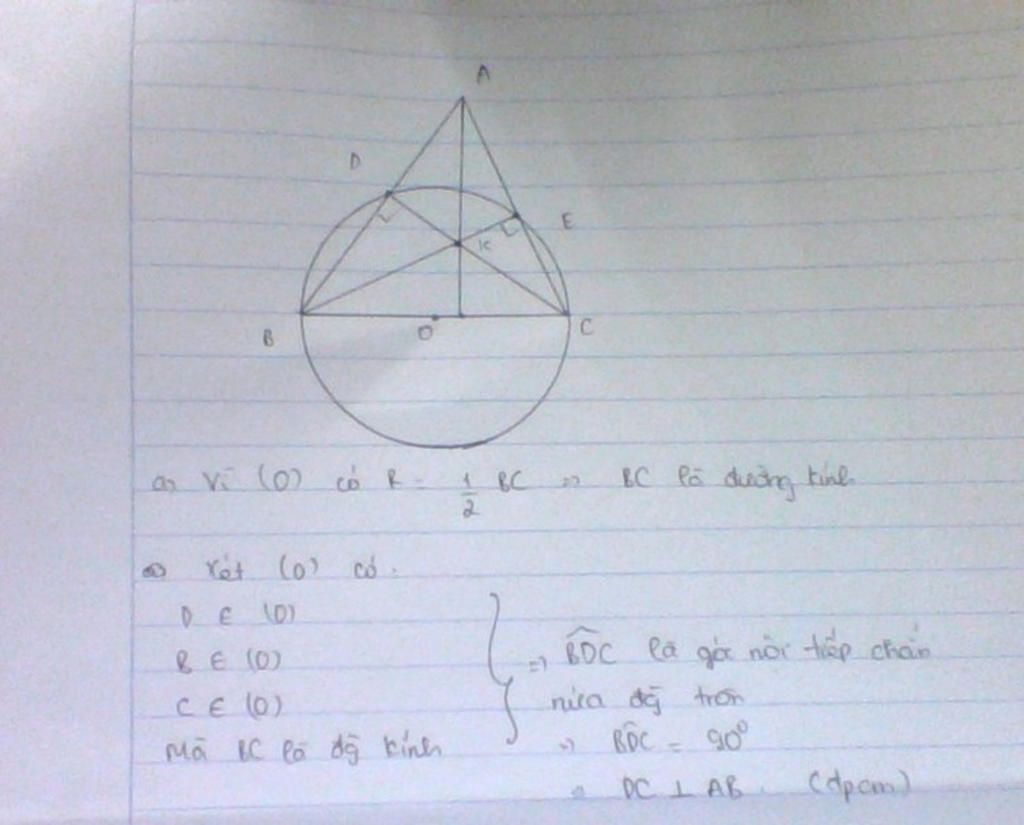 A
D
E
K
B
O
C
a) Vì (O) có R = 1/2 BC => BC là đường kính
=> Xét (O) có.
D ∈ (O)
B ∈ (O)
C ∈ (O)
Mà BC là đg kính
=> BDC là góc nội tiếp chắn
nửa đg tròn
=> BDC = 90⁰
=> DC ⊥ AB. (đpcm)